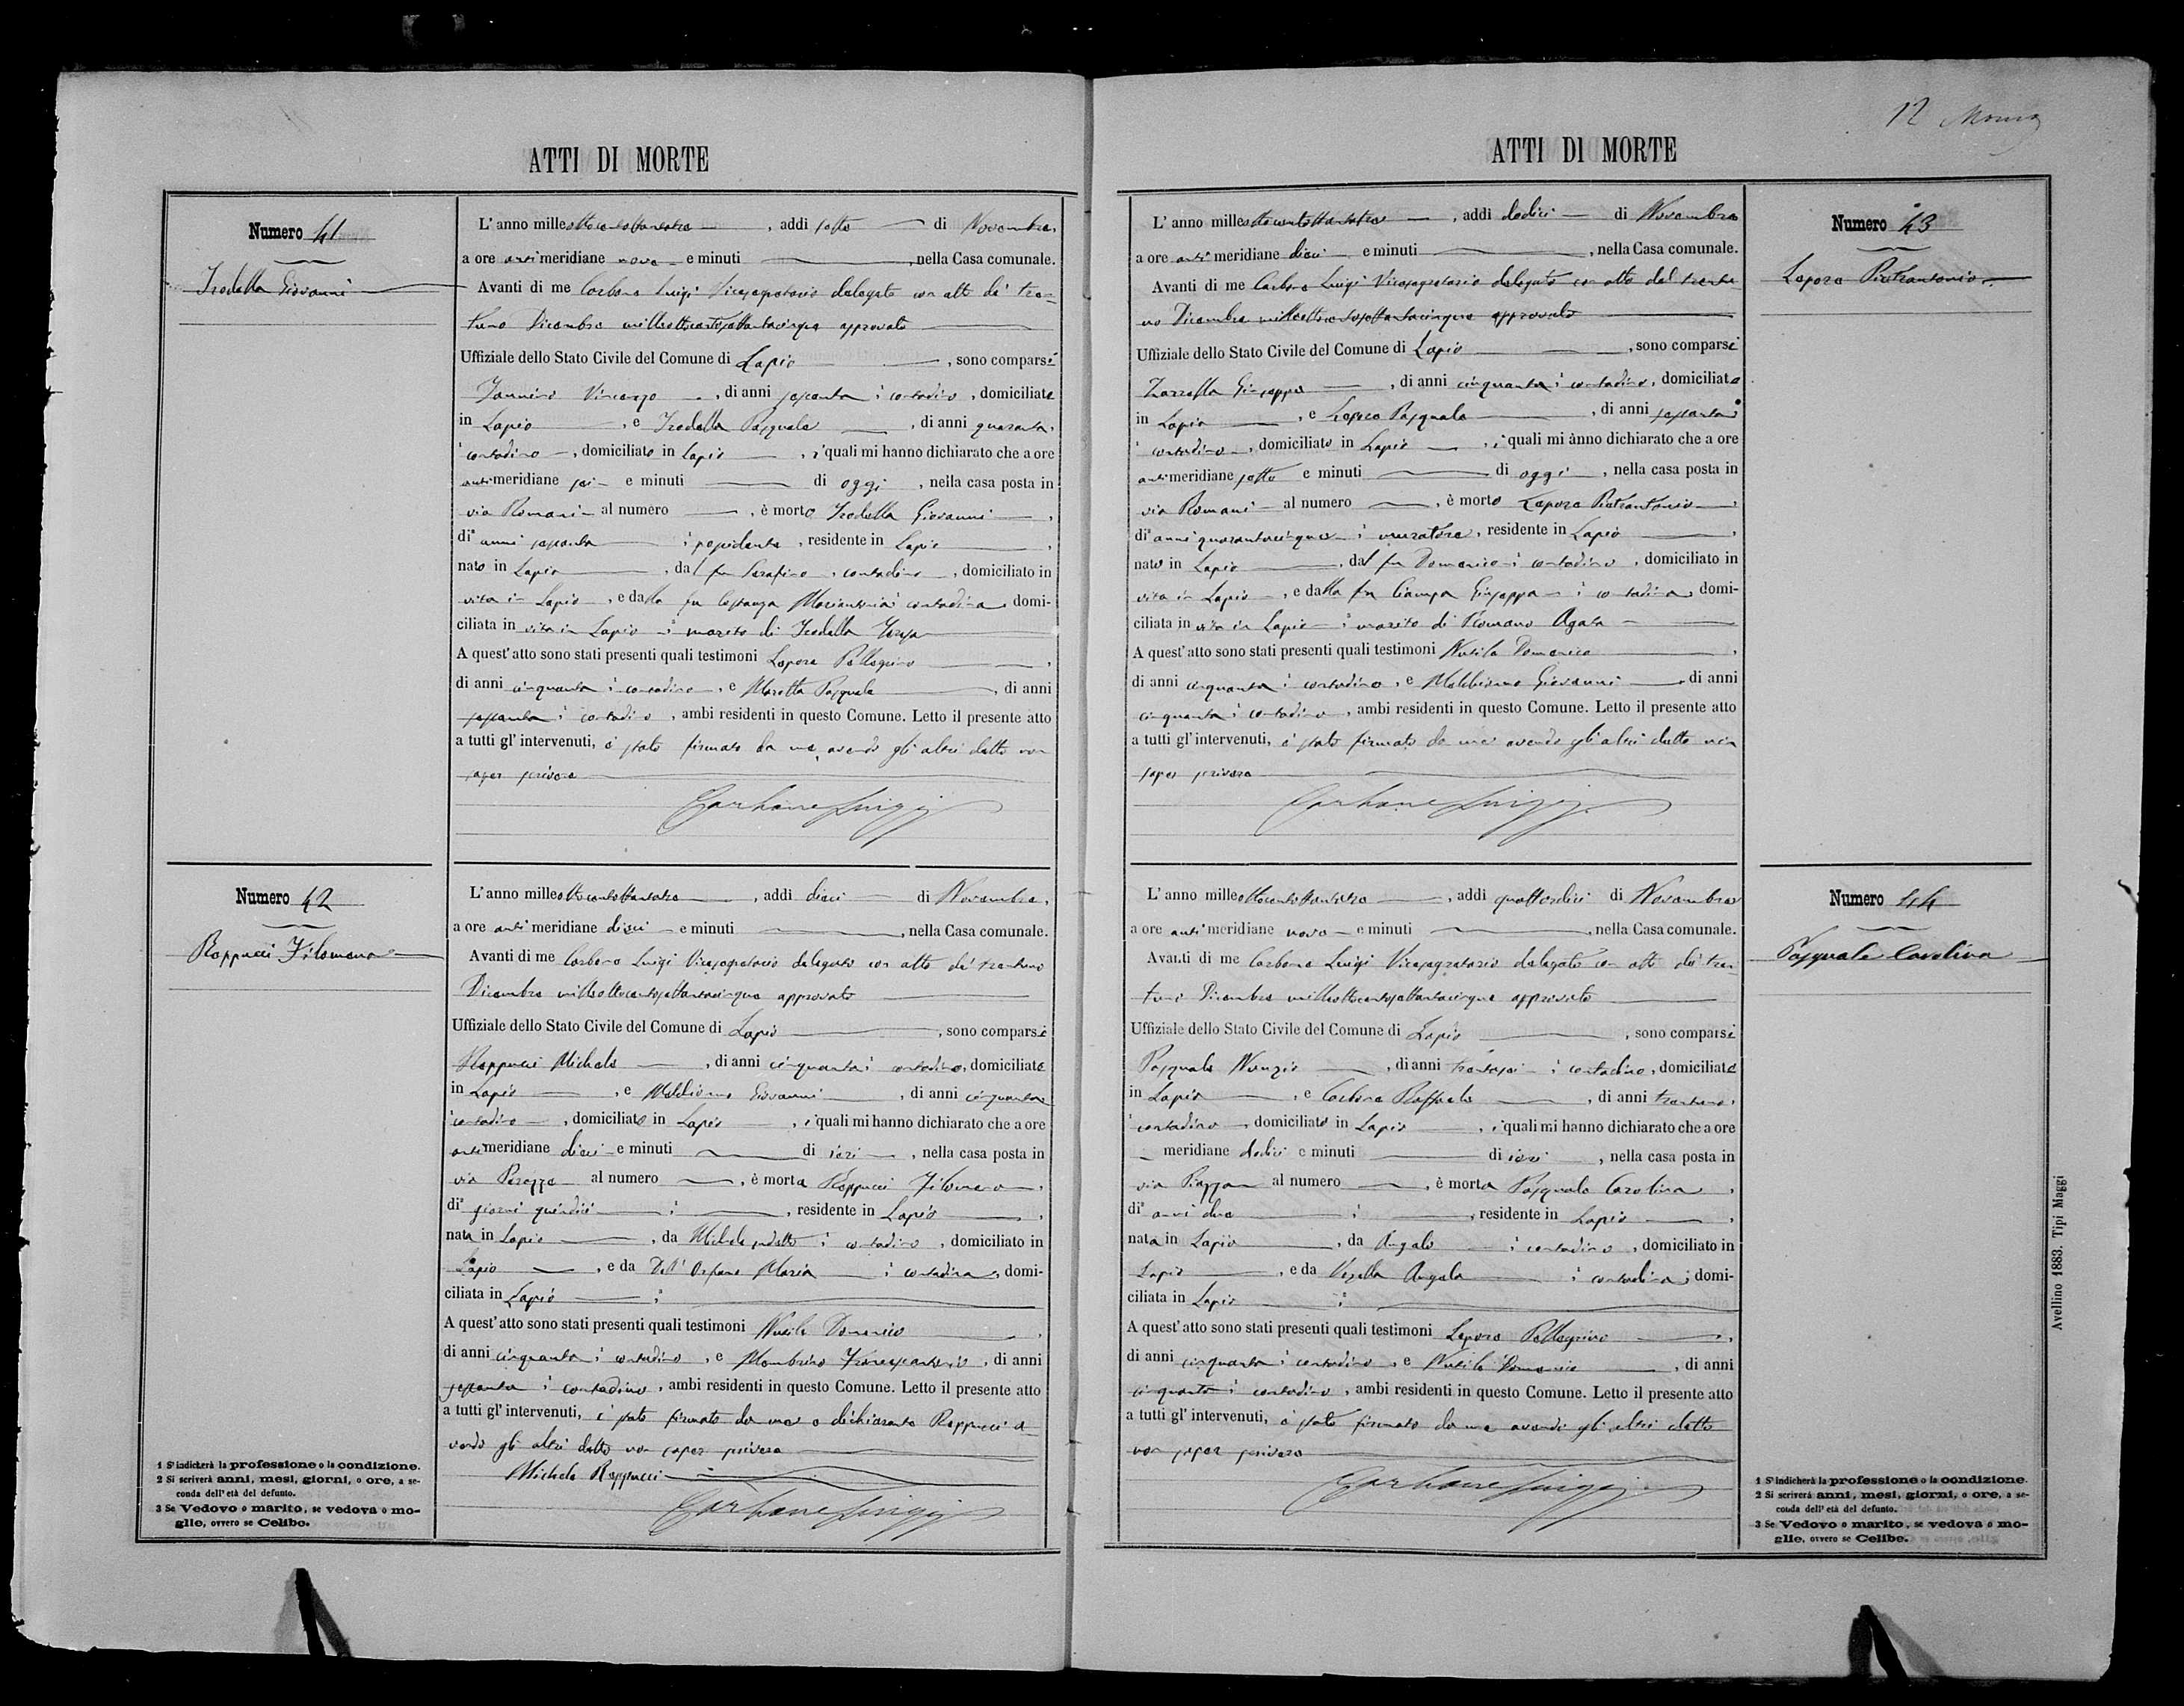 ATTI DI MORTE
Numero 41
Trodella Giovanni
L'anno milleottocentottantatre, addì sette di Novembre,
a ore antimeridiane nove e minuti, nella Casa comunale.
Avanti di me Carbone Luigi Vicesegretario delegato con atto de' tren-
tuno Dicembre milleottocentosettantacinque approvato
Uffiziale dello Stato Civile del Comune di Lapio, sono comparsi
Vincenzo, di anni sessanta, contadino, domiciliato
in Lapio, e Trodella Pasquale, di anni quaranta,
contadino, domiciliato in Lapio, i quali mi hanno dichiarato che a ore
antimeridiane sei e minuti di oggi, nella casa posta in
via Romani al numero, è morto Trodella Giovanni,
di² anni sessanta, possidente, residente in Lapio,
nato in Lapio, dal fu Serafino, contadino, domiciliato in
vita in Lapio, e dalla fu Costanza Mariantonia contadina, domi-
ciliata in vita in Lapio ³ marito di Trodella
A quest'atto sono stati presenti quali testimoni Lepore Pellegrino,
di anni cinquanta, contadino, e Marotta Pasquale, di anni
sessanta, contadino, ambi residenti in questo Comune. Letto il presente atto
a tutti gl'intervenuti, è stato firmato da me, avendo gli altri detto non
saper scrivere
Carbone Luigi
Numero 42
Rappucci Filomena
L'anno milleottocentottantatre, addì dieci di Novembre,
a ore antimeridiane dieci e minuti, nella Casa comunale.
Avanti di me Carbone Luigi Vicesegretario delegato con atto de' trentuno
Dicembre milleottocentosettantacinque approvato
Uffiziale dello Stato Civile del Comune di Lapio, sono comparsi
Rappucci Michele, di anni cinquanta, contadino, domiciliato
in Lapio, e Giovanni, di anni cinquanta
contadino, domiciliato in Lapio, i quali mi hanno dichiarato che a ore
antimeridiane dieci e minuti di ieri, nella casa posta in
via al numero, è morta Rappucci Filomena,
di² giorni quindici, residente in Lapio,
nata in Lapio, da Michele sudetto, contadino, domiciliato in
Lapio, e da Dell'Orfano Maria, contadina, domi-
ciliata in Lapio ³
A quest'atto sono stati presenti quali testimoni Nusilo Domenico,
di anni cinquanta, contadino, e Mombrino, di anni
sessanta, contadino, ambi residenti in questo Comune. Letto il presente atto
a tutti gl'intervenuti, è stato firmato da me e dichiarante Rappucci a-
vendo gli altri detto non saper scrivere
Michele Rappucci
Carbone Luigi
1 S'indicherà la professione o la condizione.
2 Si scriverà anni, mesi, giorni, o ore, a se-
conda dell'età del defunto.
3 Se Vedovo o marito, se vedova o mo-
glie, ovvero se Celibe.
12
ATTI DI MORTE
Numero 43
Lepore Pietrantonio
L'anno milleottocentottantatre, addì dodici di Novembre
a ore antimeridiane dieci e minuti, nella Casa comunale.
Avanti di me Carbone Luigi Vicesegretario delegato con atto del trentu-
no Dicembre milleottocentosettantacinque approvato
Uffiziale dello Stato Civile del Comune di Lapio, sono comparsi
Zarrella Giuseppe, di anni cinquanta, contadino, domiciliato
in Lapio, e Lepore Pasquale, di anni sessanta
contadino, domiciliato in Lapio, i quali mi ànno dichiarato che a ore
antimeridiane sette e minuti di oggi, nella casa posta in
via Romani al numero, è morto Lepore Pietrantonio,
di² anni quarantacinque, muratore, residente in Lapio,
nato in Lapio, dal fu Domenico, contadino, domiciliato in
vita in Lapio, e dalla fu Ciampa Giuseppa, contadina, domi-
ciliata in vita in Lapio ³ marito di Romano Agata
A quest'atto sono stati presenti quali testimoni Nusilo Domenico,
di anni cinquanta, contadino, e Giovanni, di anni
cinquanta, contadino, ambi residenti in questo Comune. Letto il presente atto
a tutti gl'intervenuti, è stato firmato da me avendo gli altri detto non
saper scrivere
Carbone Luigi
Numero 44
Pasquale Carolina
L'anno milleottocentottantatre, addì quattordici di Novembre
a ore antimeridiane nove e minuti, nella Casa comunale.
Avanti di me Carbone Luigi Vicesegretario delegato con atto de' tren-
tuno Dicembre milleottocentosettantacinque approvato
Uffiziale dello Stato Civile del Comune di Lapio, sono comparsi
Pasquale Nunzio, di anni trentasei, contadino, domiciliato
in Lapio, e Carbone Raffaele, di anni trentuno,
contadino, domiciliato in Lapio, i quali mi hanno dichiarato che a ore
meridiane dodici e minuti di ieri, nella casa posta in
via Piazza al numero, è morta Pasquale Carolina,
di² anni due, residente in Lapio,
nata in Lapio, da Angelo, contadino, domiciliato in
Lapio, e da Vozella Angela, contadina, domi-
ciliata in Lapio ³
A quest'atto sono stati presenti quali testimoni Lepore Pellegrino,
di anni cinquanta, contadino, e Nusilo Domenico, di anni
cinquanta, contadino, ambi residenti in questo Comune. Letto il presente atto
a tutti gl'intervenuti, è stato firmato da me avendo gli altri detto
non saper scrivere
Carbone Luigi
1 S'indicherà la professione o la condizione.
2 Si scriverà anni, mesi, giorni, o ore, a se-
conda dell'età del defunto.
3 Se Vedovo o marito, se vedova o mo-
glie, ovvero se Celibe.
Avellino 1883. Tipi Maggi